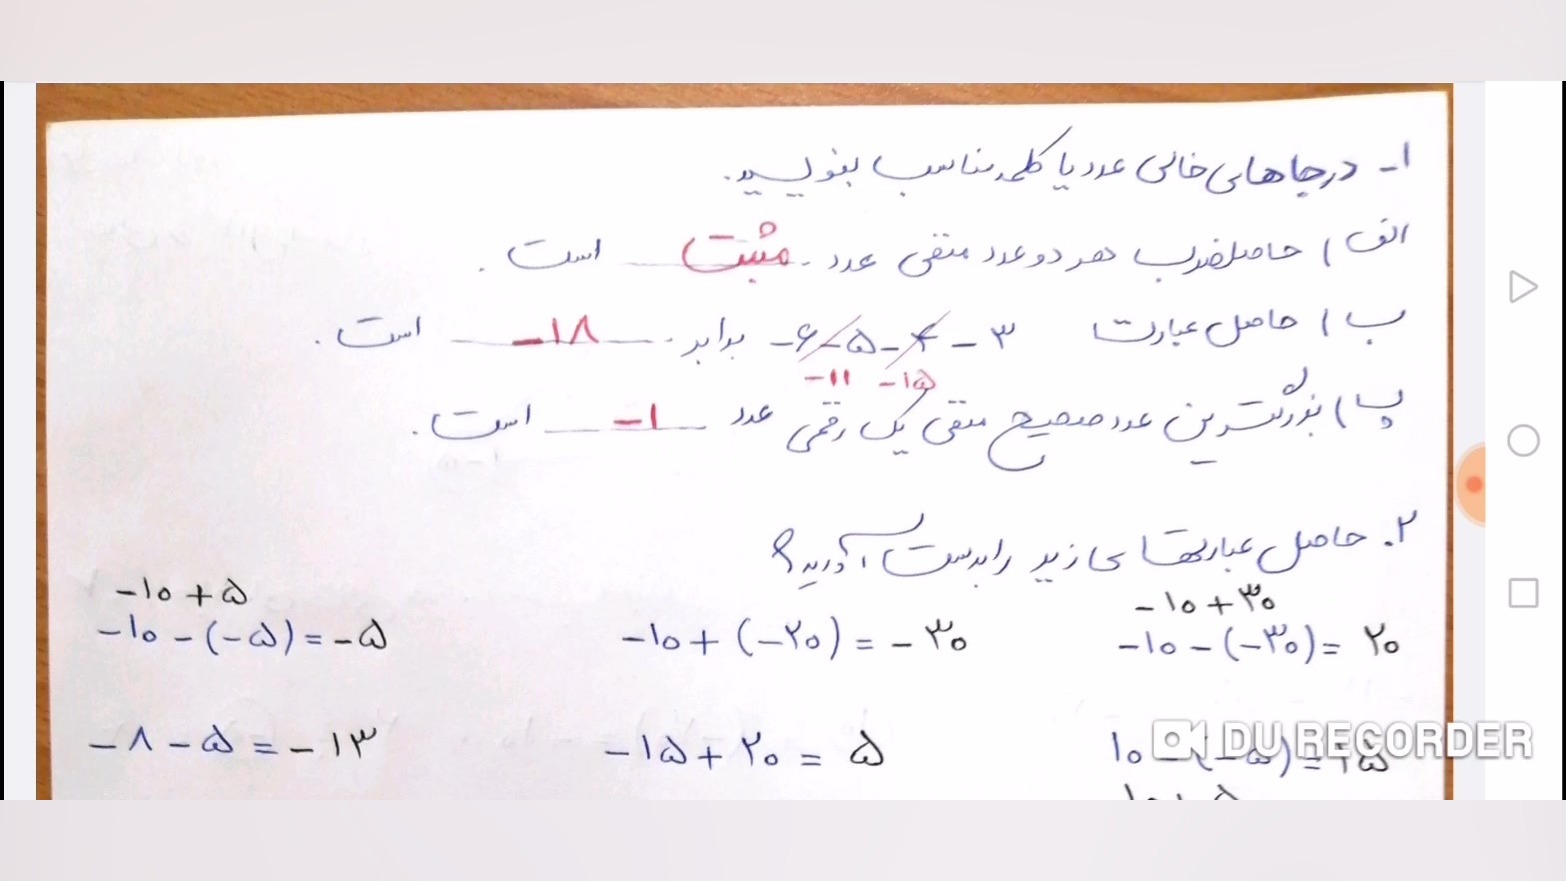 ۱- در جاهای خالی عدد یا کلمه مناسب بنویسید.
الف) حاصلضرب هر دو عدد منفی عدد مثبت است.
ب) حاصل عبارت -۶-۵-۴-۳ برابر -۱۸ است.
-۱۱ -۱۵
پ) بزرگترین عدد صحیح منفی یک رقمی عدد -۱ است.
۲. حاصل عبارتهای زیر را بدست آورید؟
-۱۰+۵ -۱۰+۳۰
-۱۰-(-۵)=-۵ -۱۰+(-۲۰)=-۳۰ -۱۰-(-۳۰)=۲۰
-۸-۵=-۱۳ -۱۵+۲۰=۵ ۱۰-(-۵)=۱۵
DU RECORDER